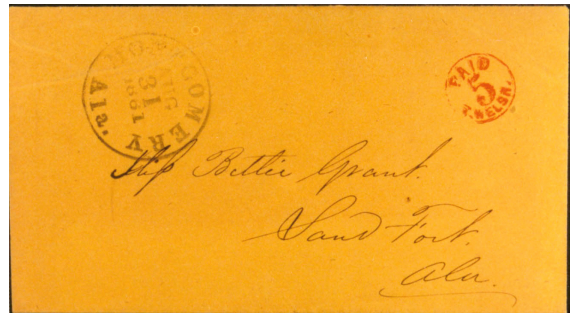 MONTGOMERY Ala.
AUG
31
1861
PAID
5
T. WELSH.
Miss Bettie Grant.
Sand Fort.
Ala.